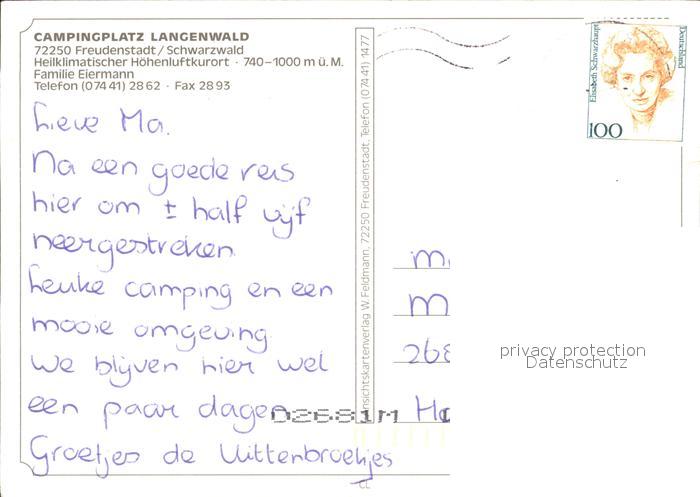 CAMPINGPLATZ LANGENWALD
72250 Freudenstadt/Schwarzwald
Heilklimatischer Höhenluftkurort · 740–1000 m ü. M.
Familie Eiermann
Telefon (07441) 2862 · Fax 2893
Lieve Ma.
Na een goede reis
hier om ± half vijf
neergestreken.
Leuke camping en een
mooie omgeving
We blijven hier wel
een paar dagen
Groetjes de Uittenbroekjes
Ansichtskartenverlag W. Feldmann, 72250 Freudenstadt, Telefon (07441) 1477
Elisabeth Schwarzhaupt
Deutschland
100
M
268
privacy protection
Datenschutz